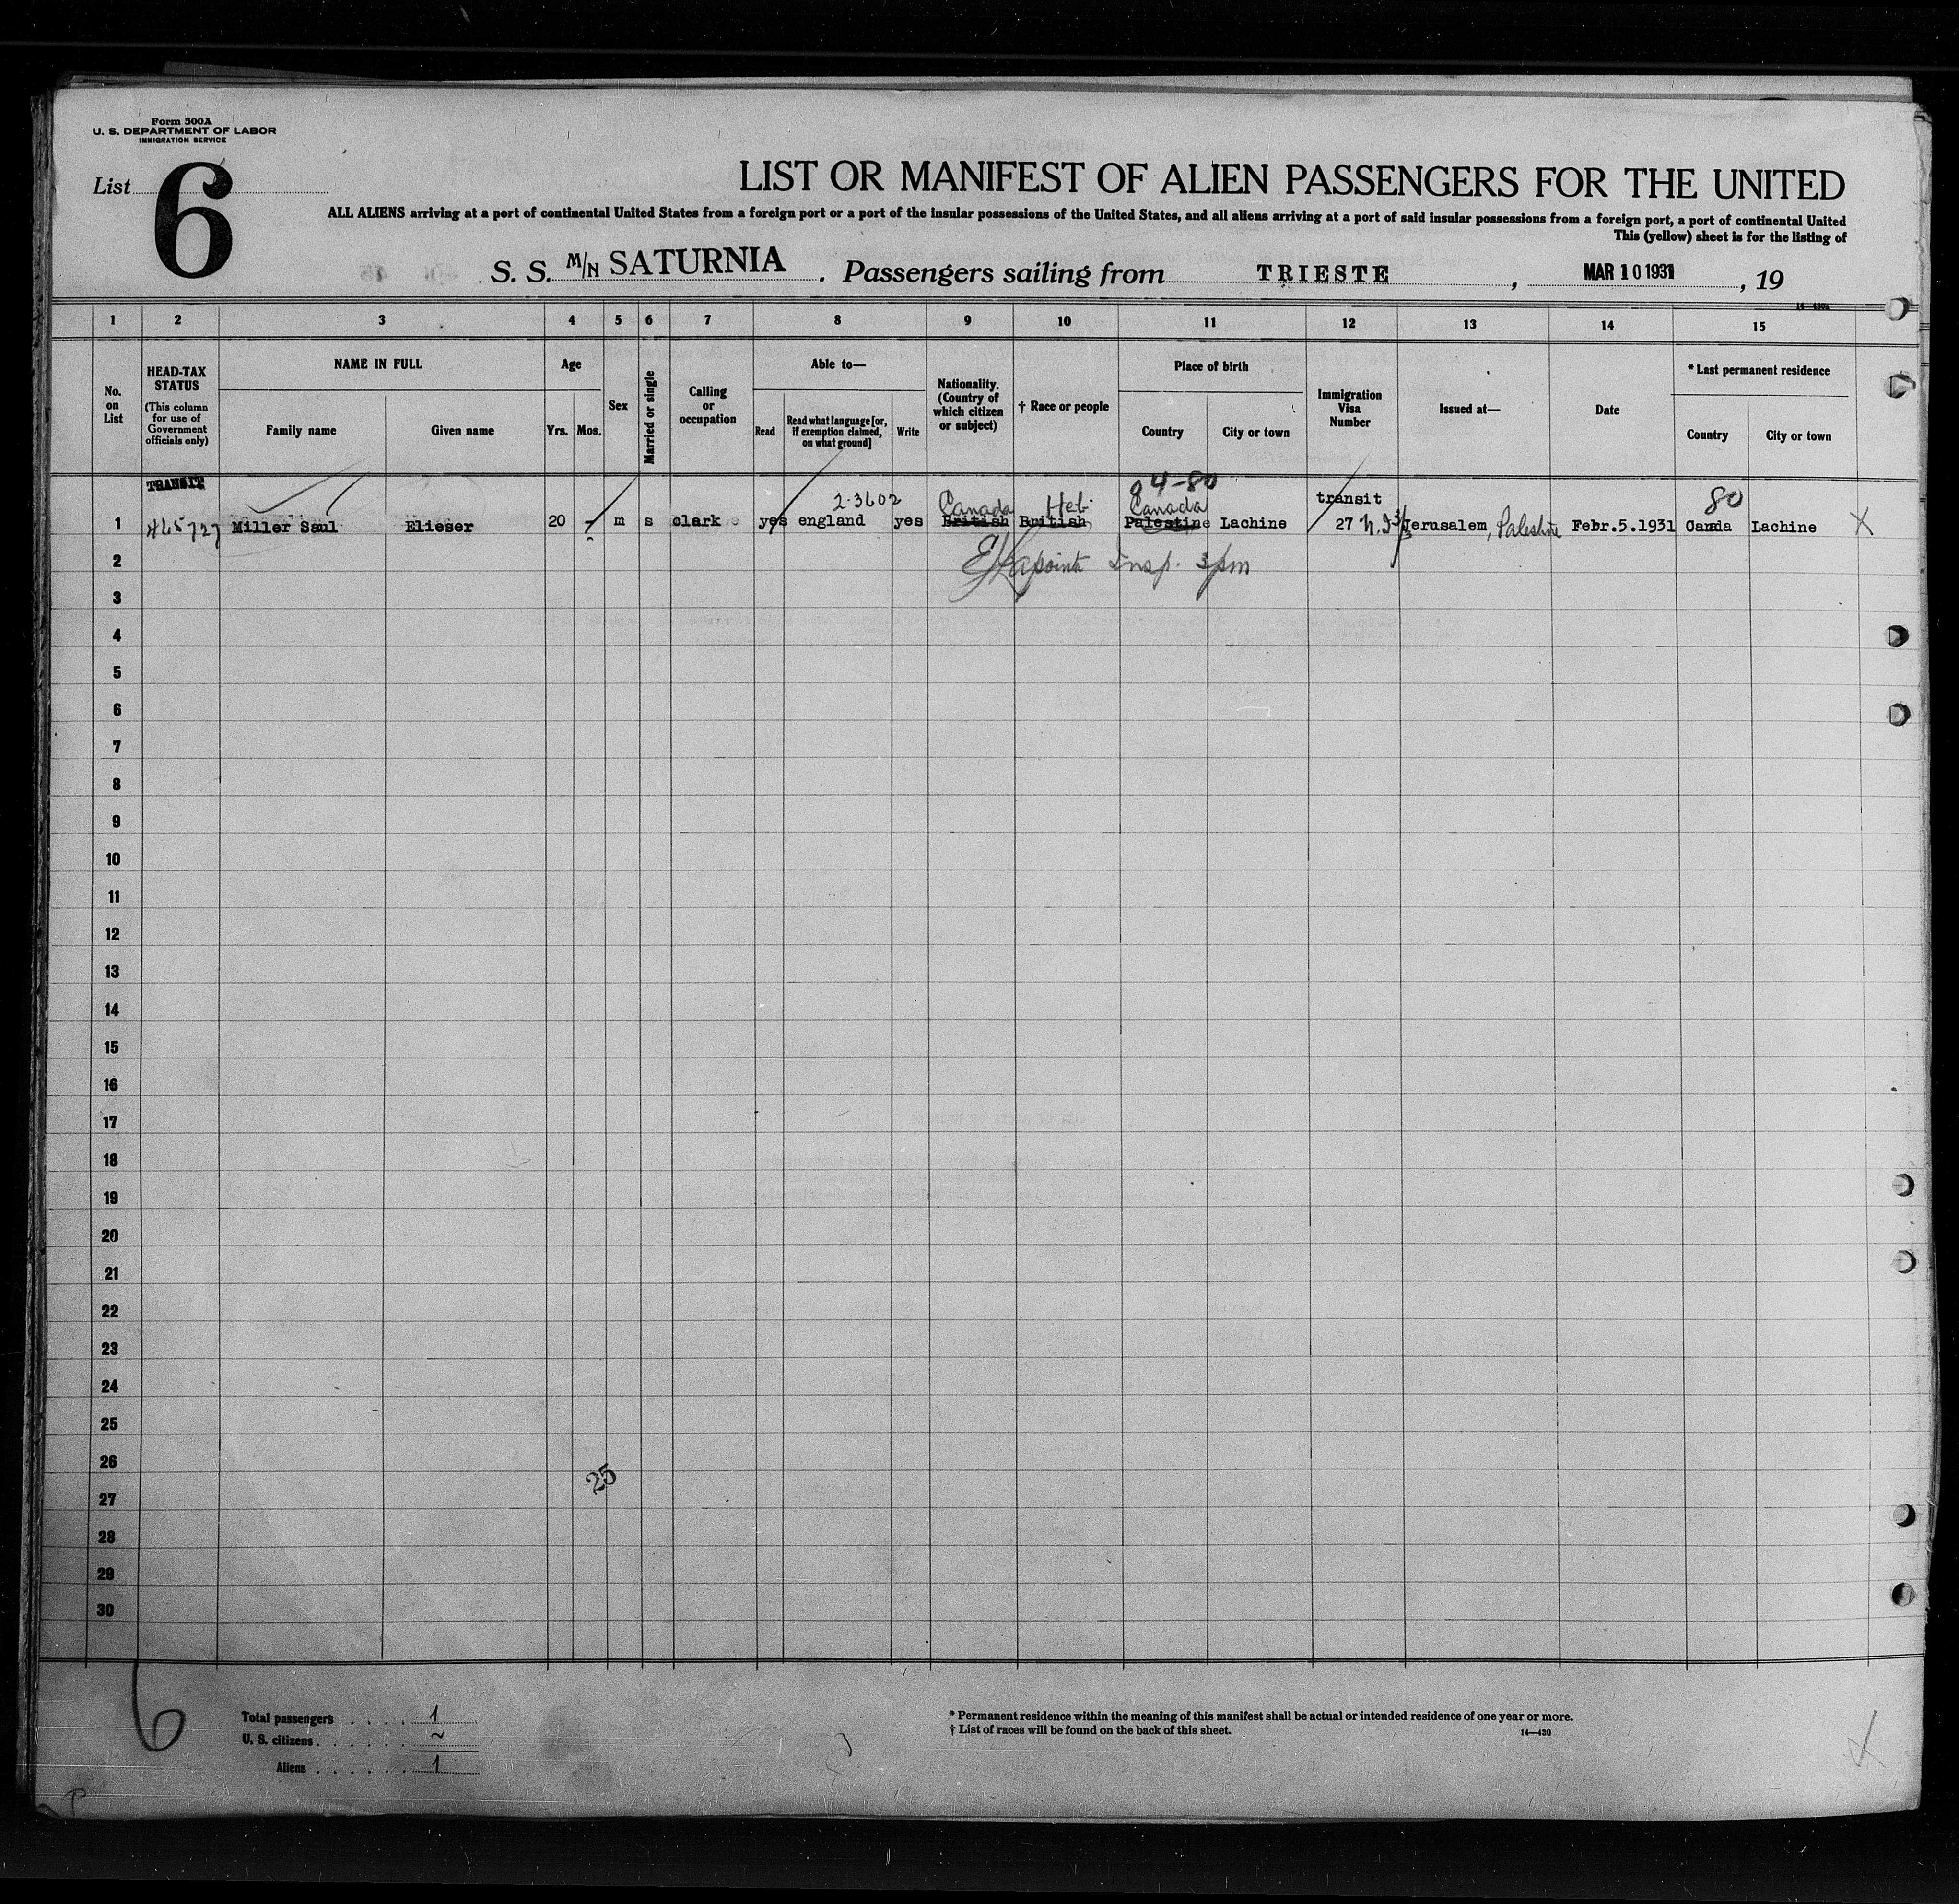 Form 500A
U. S. DEPARTMENT OF LABOR
IMMIGRATION SERVICE
List 6
LIST OR MANIFEST OF ALIEN PASSENGERS FOR THE UNITED
ALL ALIENS arriving at a port of continental United States from a foreign port or a port of the insular possessions of the United States, and all aliens arriving at a port of said insular possessions from a foreign port, a port of continental United
This (yellow) sheet is for the listing of
S. S. M/N SATURNIA . Passengers sailing from TRIESTE , MAR 10 1931 , 19
14—430a
1 2 3 4 5 6 7 8 9 10 11 12 13 14 15
No. on List
HEAD-TAX STATUS
(This column for use of Government officials only)
NAME IN FULL
Family name
Given name
Age
Yrs. Mos.
Sex
Married or single
Calling or occupation
Able to—
Read
Read what language [or, if exemption claimed, on what ground]
Write
Nationality. (Country of which citizen or subject)
† Race or people
Place of birth
Country
City or town
Immigration Visa Number
Issued at—
Date
* Last permanent residence
Country
City or town
TRANSIT 2-3602 Canada Heb. 04-80 Canada transit 80
1 465727 Miller Saul Elieser 20 - m s clerk yes england yes British British Palestine Lachine 27 Jerusalem, Palestine Febr.5.1931 Canada Lachine X
2 Lapointe Insp. 3pm
3
4
5
6
7
8
9
10
11
12
13
14
15
16
17
18
19
20
21
22
23
24
25
26
25
27
28
29
30
6
Total passengers . . . . 1
U. S. citizens . . . . . . ~
Aliens . . . . . . 1
* Permanent residence within the meaning of this manifest shall be actual or intended residence of one year or more.
† List of races will be found on the back of this sheet.
14—430
P